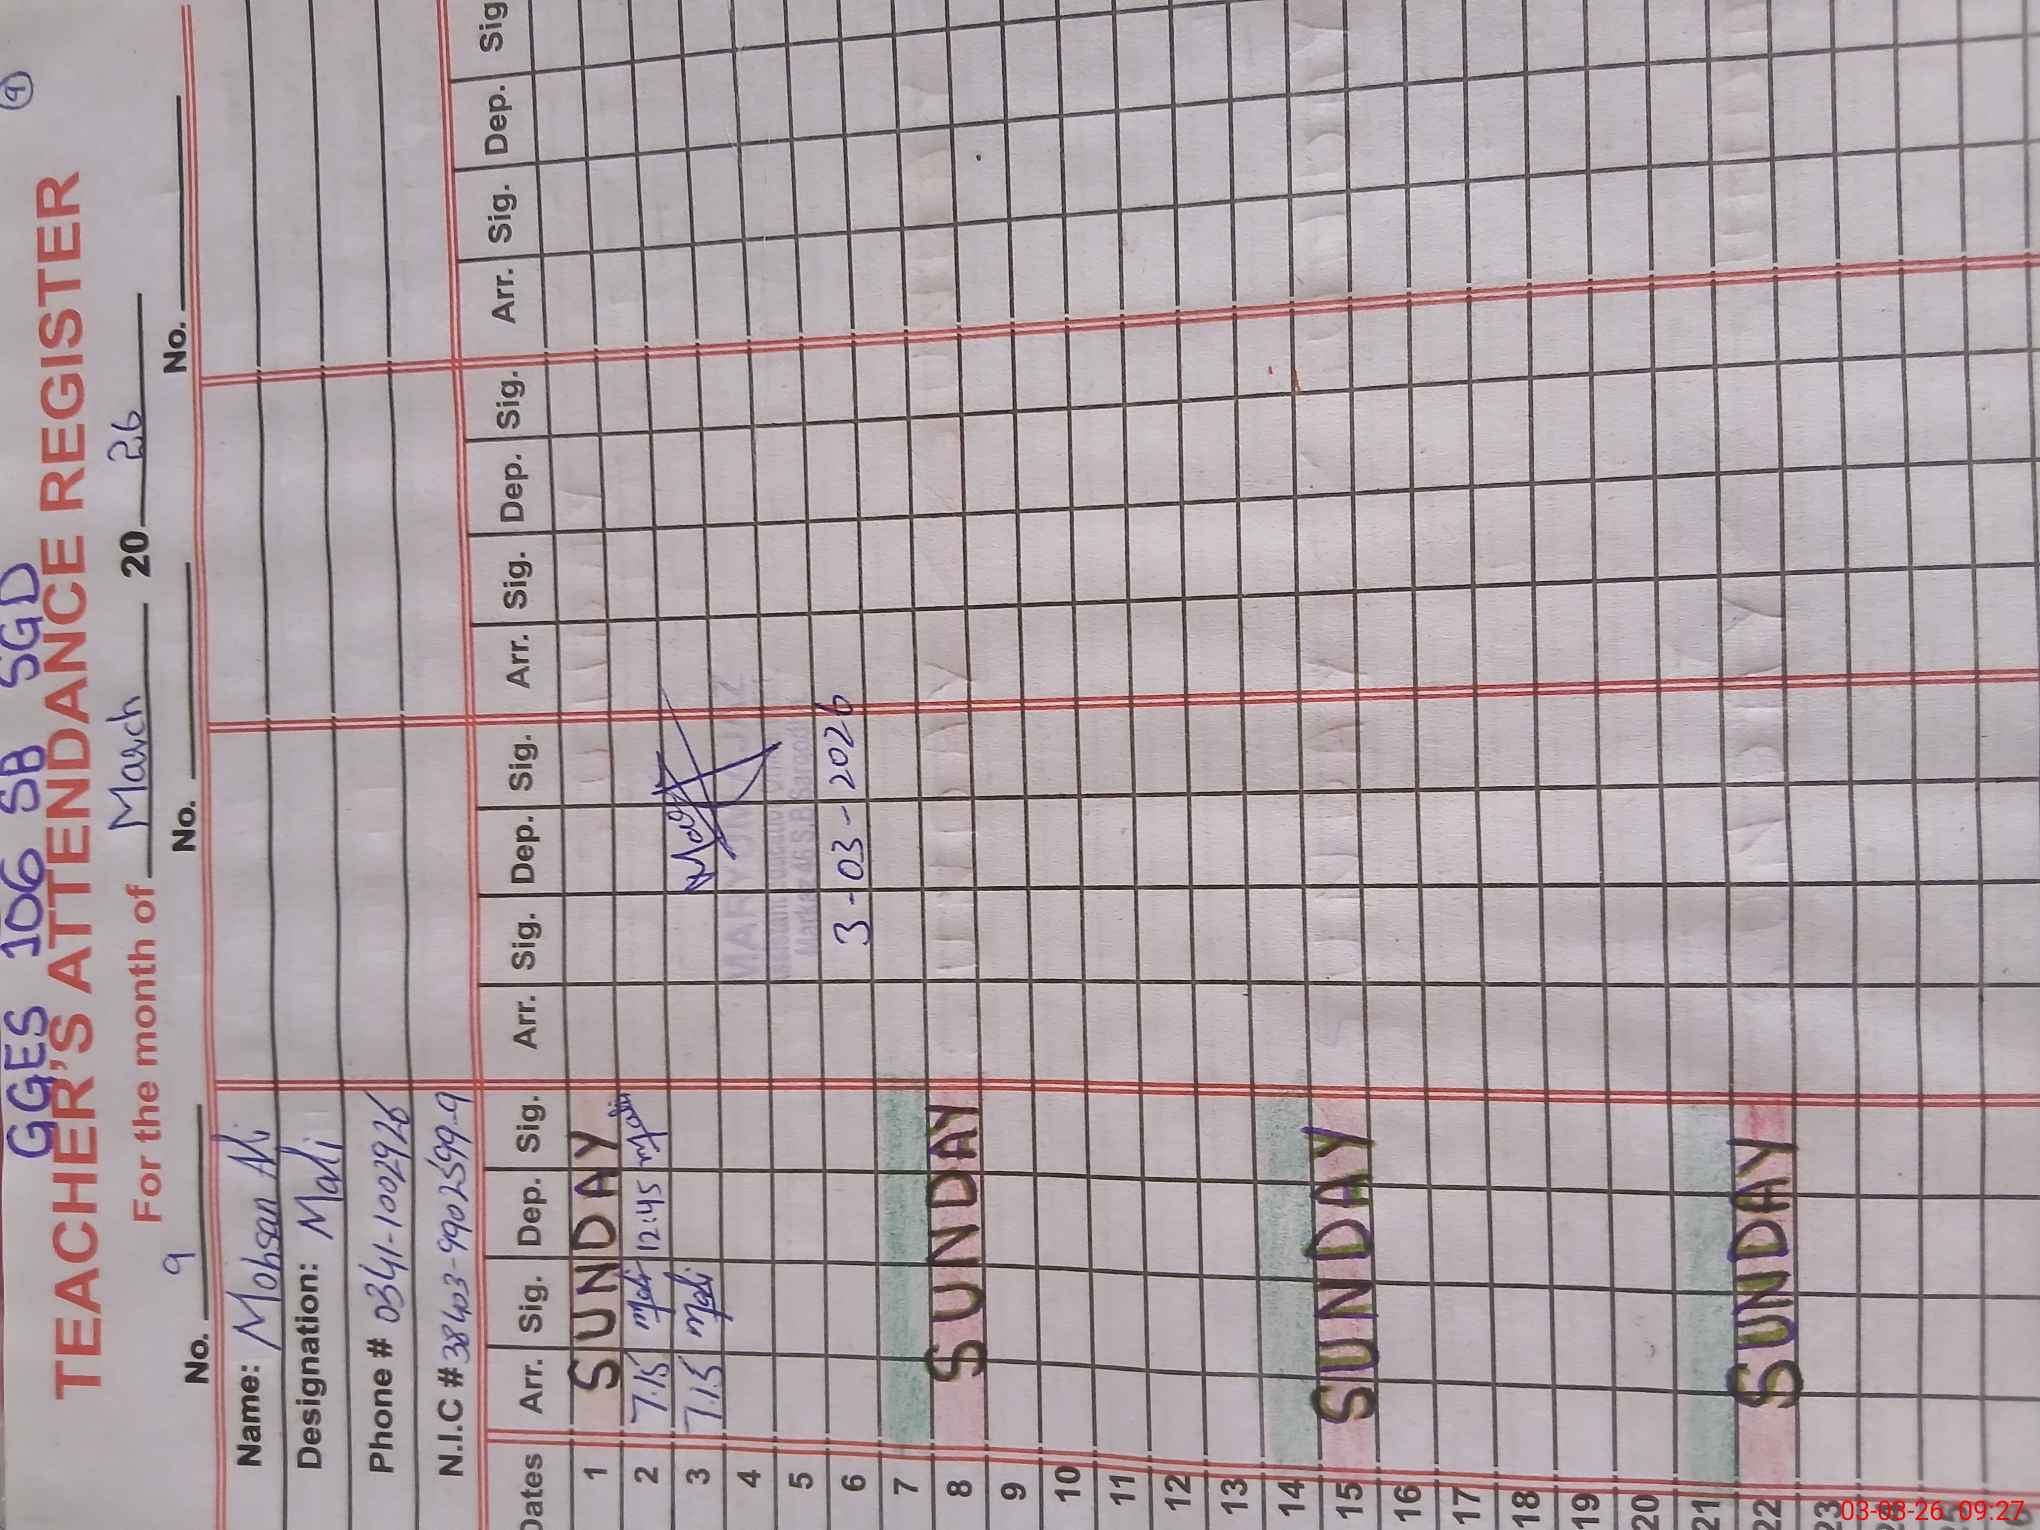 GGES 106 SB SGD
TEACHER'S ATTENDANCE REGISTER
For the month of March 20 26
No. 9 No. No.
Name: Mohsan Ali
Designation: Mali
Phone # 0341-1002926
N.I.C # 38403-9902599-9
Dates Arr. Sig. Dep. Sig. Arr. Sig. Dep. Sig. Arr. Sig. Dep. Sig. Arr. Sig. Dep. Sig
1 SUNDAY
2 7.15 Mali 12:45 Mali
3 7.15 Mali
4
5
6 3-03-2026
7
8 SUNDAY
9
10
11
12
13
14
15 SUNDAY
16
17
18
19
20
21
22 SUNDAY
23
03-03-26 09:27